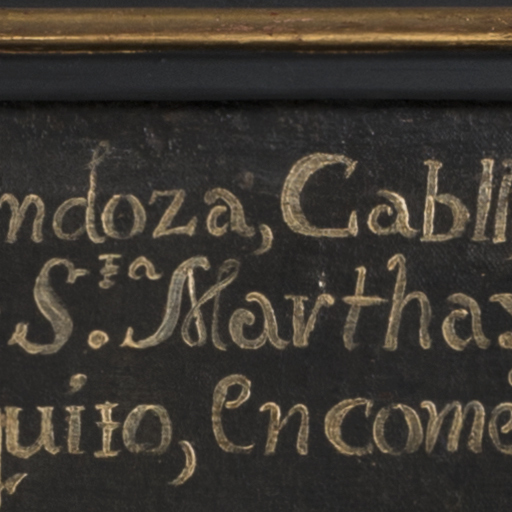 ndoza, Cabll
S.ra Martha
quito, Encome